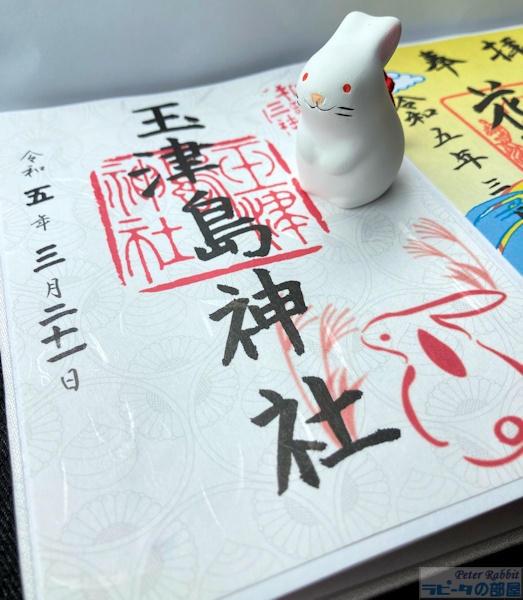 玉津島神社
令和五年三月二十一日
玉津島神社
奉拝
令和五年三
花
Peter Rabbit
ラピータの部屋